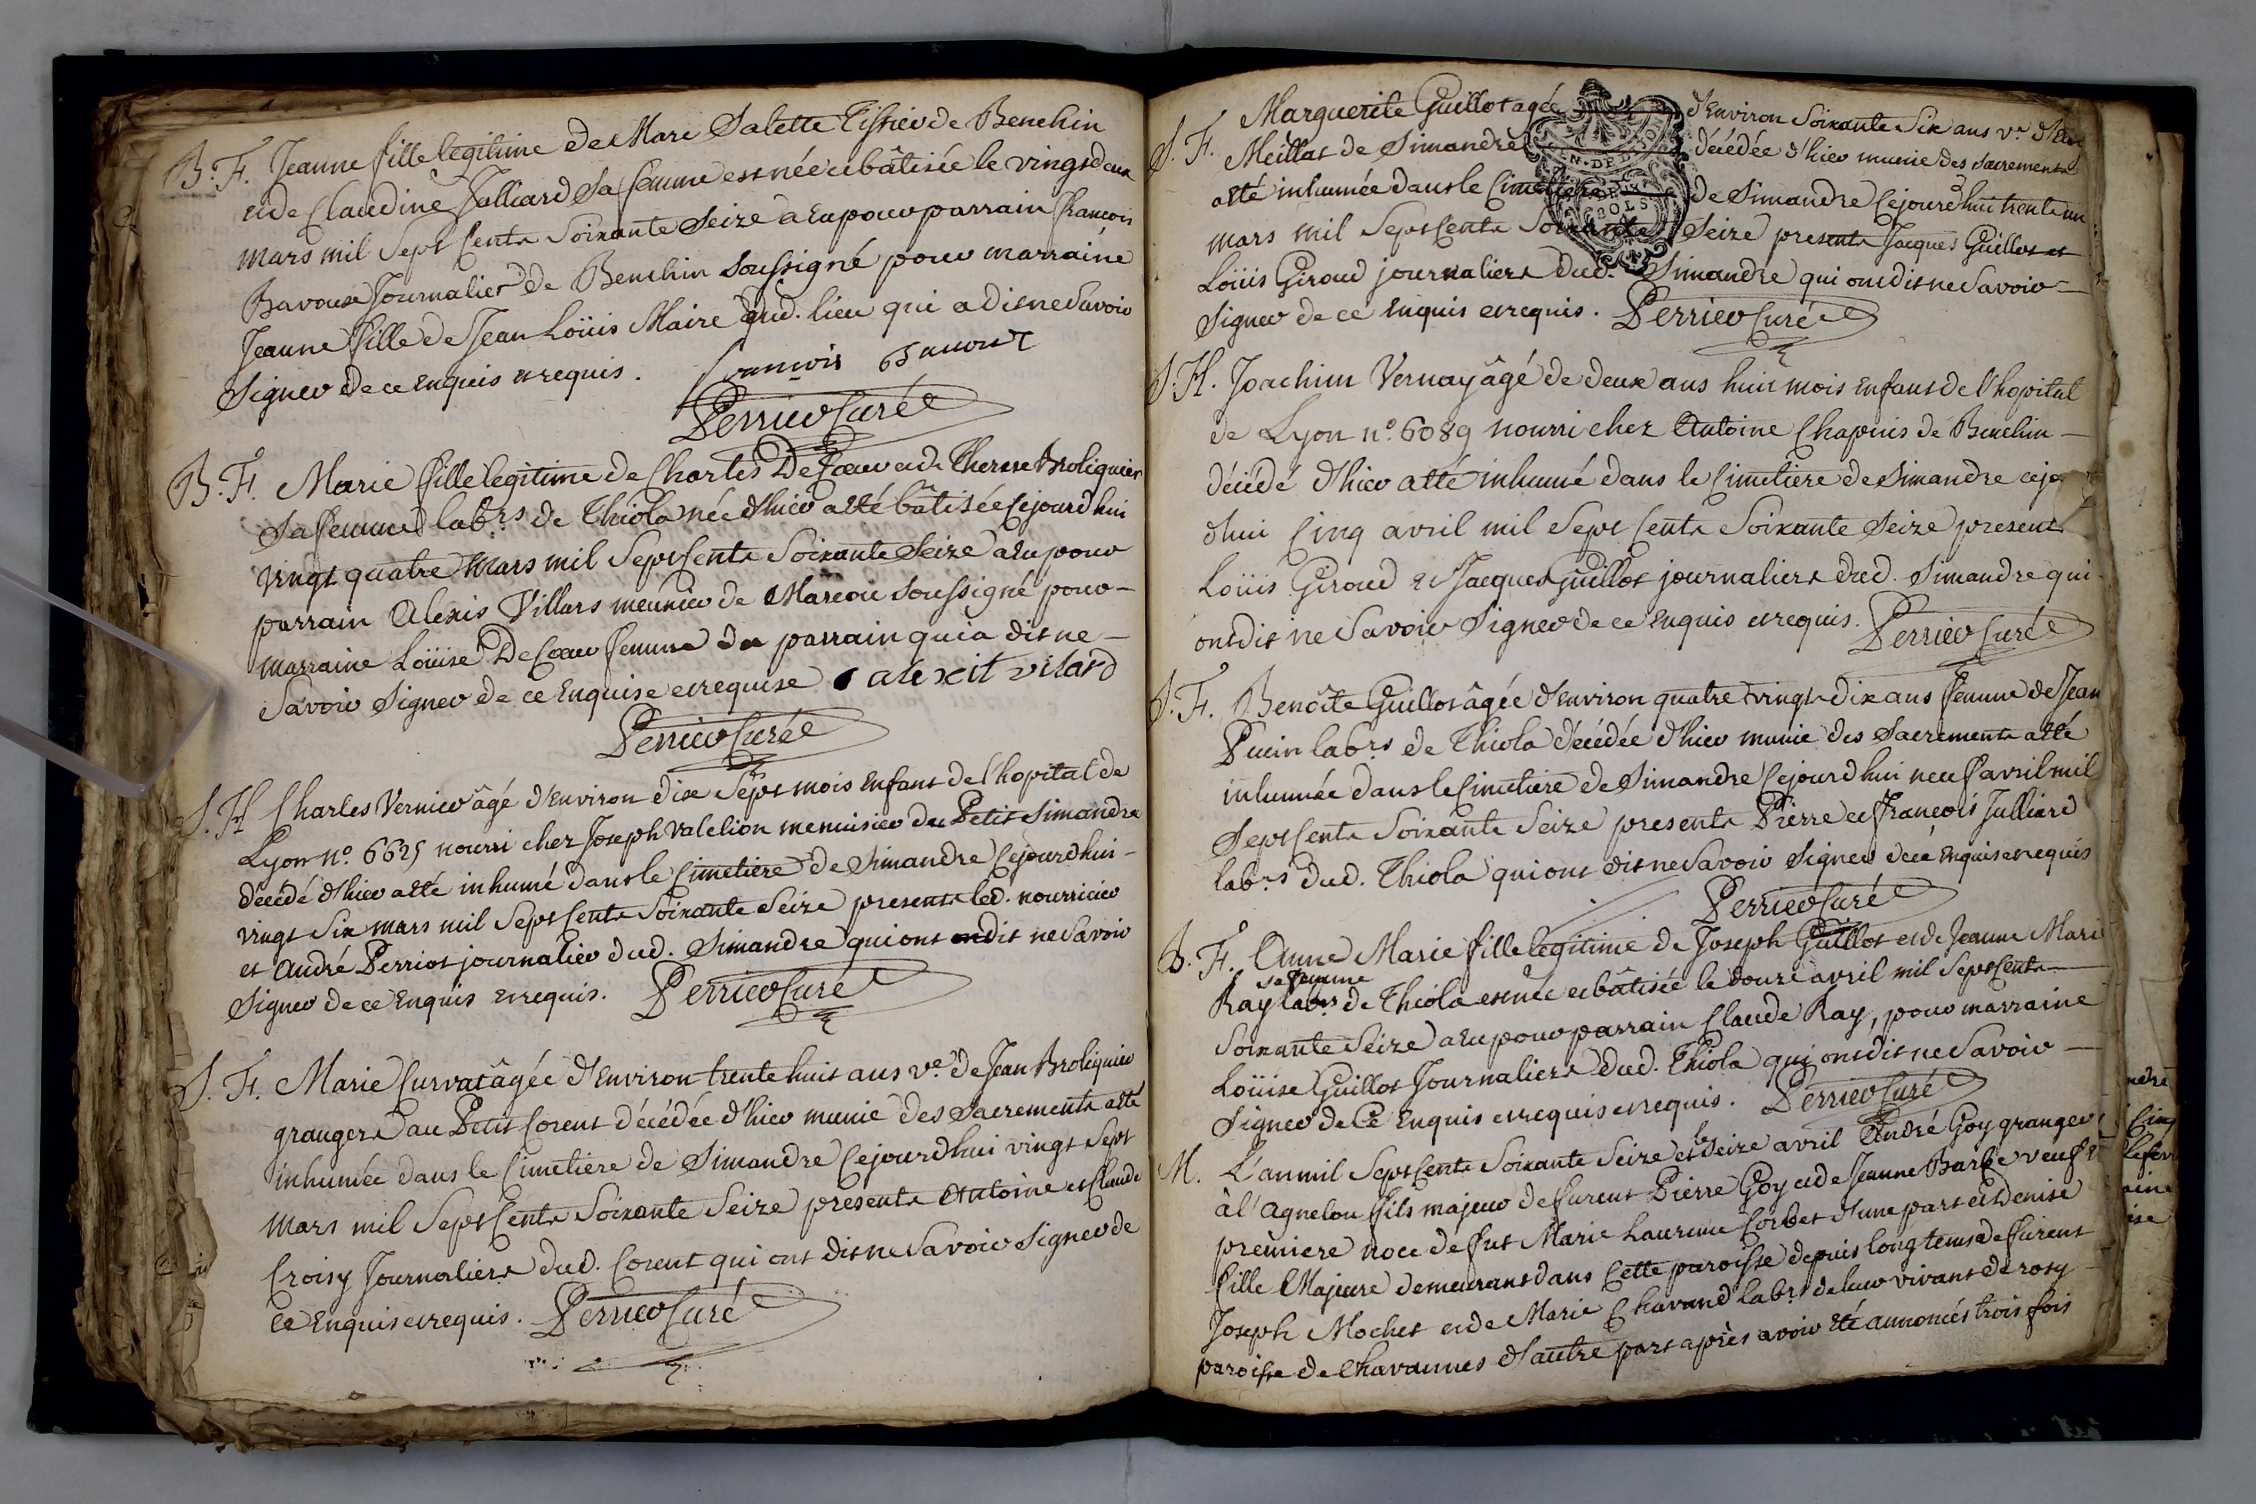 B. F. Jeanne fille legitime de Marc Salette Tissier de Benchin
et de Claudine Julliard sa femme est née et bâtisée le vingt deux
mars mil sept cents soixante seize a eu pour parrain francois
Bavoux Journalier de Benchin soussigné pour marraine
Jeanne fille de Jean Loüis Maire dud. lieu qui a dit ne savoir
signer de ce enquis et requis. francois
Perrier Curé
B. F. Marie fille legitime de Charles De Coeur et de Therese Broliquier
sa femme labrs de Thiola née d'hier a été bâtisée cejourdhui
vingt quatre mars mil sept cents soixante seize a eu pour
parrain Alexis Villars meunier de Marcou soussigné pour
marraine Loüise De Coeur femme du parrain qui a dit ne
savoir signer de ce enquise et requise alexit vilard
Perrier Curé
S. H. Charles Vernier âgé d'environ dix sept mois enfant de l'hopital de
Lyon no. 6625 nourri chez Joseph valelion menuisier du Petit Simandre
décédé d'hier a été inhumé dans le cimetiere de Simandre cejourdhui
vingt six mars mil sept cents soixante seize presents led. nourricier
et André Perriot journalier dud. Simandre qui ont dit ne savoir
signer de ce enquis et requis. Perrier Curé
S. F. Marie Curvat âgée d'environ trente huit ans ve. de Jean Broliquier
grangers au Petit Corent décédée d'hier munie des sacrements a été
inhumée dans le cimetiere de Simandre cejourdhui vingt sept
mars mil sept cents soixante seize presents Antoine et Claude
Croisy Journaliers dud. Corent qui ont dit ne savoir signer de
ce enquis et requis. Perrier Curé
S. F. Marguerite Guillot agée d'environ soixante six ans ve. d'
Meillat de Simandre décédée d'hier munie des sacrements
a été inhumée dans le cimetiere de Simandre cejourdhui trente un
mars mil sept cents soixante seize presents Jacques Guillot et
Loüis Giroud journaliers dud. Simandre qui ont dit ne savoir
signer de ce enquis et requis. Perrier Curé
S. H. Joachim Vernay âgé de deux ans huit mois enfant de l'hopital
de Lyon no. 6089 nourri chez Antoine Chapuis de Benchin
décédé d'hier a été inhumé dans le cimetiere de Simandre cejo
dhui cinq avril mil sept cents soixante seize present
Loüis Giroud et Jacques Guillot journaliers dud. Simandre qui
ont dit ne savoir signer de ce enquis et requis. Perrier Curé
S. F. Benoîte Guillot âgée d'environ quatre vingt-dix ans femme de Jean
Pucin labrs de Thiola décédée d'hier munie des sacrements a été
inhumée dans le cimetiere de Simandre cejourdhui neuf avril mil
sept cents soixante seize presents Pierre et François Julliard
labrs dud. Thiola qui ont dit ne savoir signer de ce enquis et requis
Perrier Curé
B. F. Anne Marie fille legitime de Joseph Guillot et de Jeanne Marie
Ray sa femme labrs de Thiola est née et bâtisée le douze avril mil sept cents
soixante seize a eu pour parrain Claude Ray, pour marraine
Loüise Guillot Journaliers dud. Thiola qui ont dit ne savoir
signer de ce enquis et requis et requis. Perrier Curé
M. L'an mil sept cents soixante seize et le seize avril André Goy granger
à l'agnelou fils majeur de furent Pierre Goy et de Jeanne Barbe veuf e
premiere noce de fut Marie Laurence Corbet d'une part et Denise
fille Majeure demeurant dans cette paroisse depuis long tems de furent
Joseph Mochet et de Marie Chavand labrs de leur vivant de rosy
paroisse de Chavannes d'autre part après avoir été annoncés trois fois